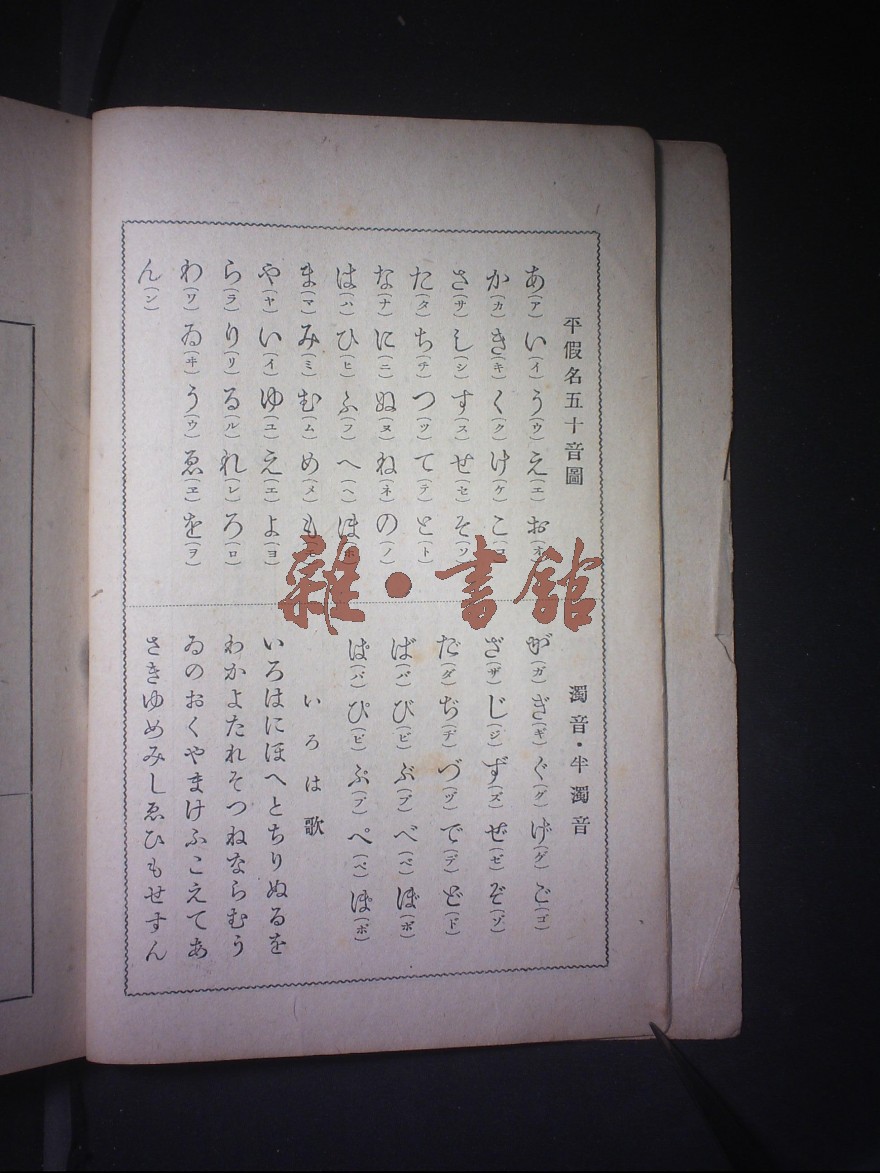 平假名五十音圖
あ(ア)い(イ)う(ウ)え(エ)お(オ)
か(カ)き(キ)く(ク)け(ケ)こ(コ)
さ(サ)し(シ)す(ス)せ(セ)そ(ソ)
た(タ)ち(チ)つ(ツ)て(テ)と(ト)
な(ナ)に(ニ)ぬ(ヌ)ね(ネ)の(ノ)
は(ハ)ひ(ヒ)ふ(フ)へ(ヘ)ほ(ホ)
ま(マ)み(ミ)む(ム)め(メ)も(モ)
や(ヤ)い(イ)ゆ(ユ)え(エ)よ(ヨ)
ら(ラ)り(リ)る(ル)れ(レ)ろ(ロ)
わ(ワ)ゐ(ヰ)う(ウ)ゑ(ヱ)を(ヲ)
ん(ン)
濁音・半濁音
が(ガ)ぎ(ギ)ぐ(グ)げ(ゲ)ご(ゴ)
ざ(ザ)じ(ジ)ず(ズ)ぜ(ゼ)ぞ(ゾ)
だ(ダ)ぢ(ヂ)づ(ヅ)で(デ)ど(ド)
ば(バ)び(ビ)ぶ(ブ)べ(ベ)ぼ(ボ)
ぱ(パ)ぴ(ピ)ぷ(プ)ぺ(ペ)ぽ(ポ)
いろは歌
いろはにほへとちりぬるを
わかよたれそつねならむう
ゐのおくやまけふこえてあ
さきゆめみしゑひもせすん
雜・書館